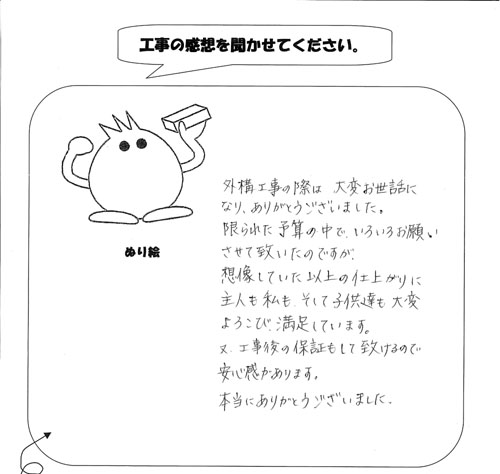 工事の感想を聞かせてください。
ぬり絵
外構工事の際は 大変お世話に
なり、ありがとうございました。
限られた予算の中で、いろいろお願い
させて致いたのですが、
想像していた以上の仕上がりに
主人も私も、そして子供達も大変
よろこび、満足しています。
又、工事後の保証もして致けるので
安心感があります。
本当にありがとうございました。